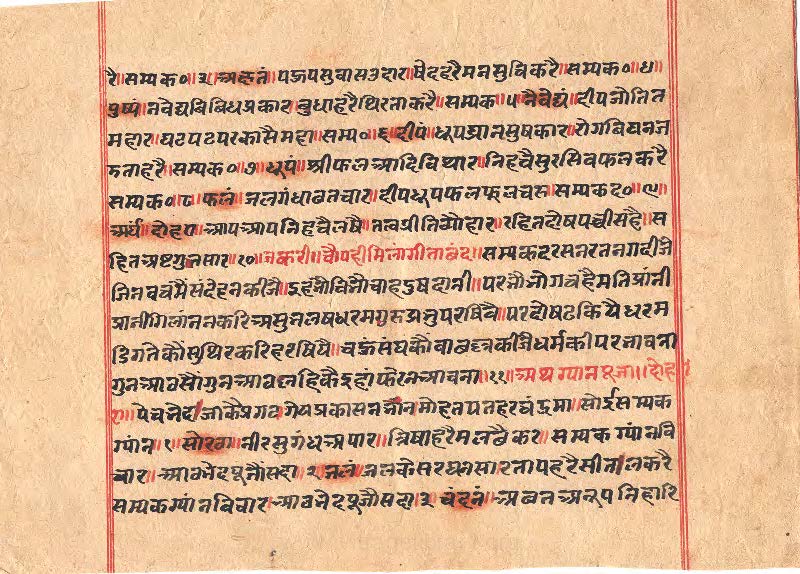 रै॥ सम्यक०॥ ३॥ अक्षतं॥ पऊपसुवासउदार॥ षेदहरैमनसुचिकरै॥ सम्यक०॥ ४॥
पुष्पं॥ नेवेद्यबिबिधप्रकार॥ छुधाहरैथिरताकरै॥ सम्यक॥ ५ नैवेद्यं॥ दीपजोतित
महार॥ घटपटपरकासैमहा॥ सम्य०॥ ६ दीपं॥ धूपघ्रानसुषकार॥ रोगबिघनज
डताहरै॥ सम्यक०॥ ७॥ धूपं॥ श्रीफलआदिविथार॥ निहचैसुरसिवफलकरै
सम्यक०॥ ८॥ फलं॥ जलगंधाक्षतचार॥ दीपधूपफलफूलचरु॥ सम्यकद०॥ ९॥
अर्घं॥ दोहरा॥ आपआपनिहचैलषै॥ तत्वप्रीतिव्यौहार॥ रहितदोषपचीसहै॥ स
हितअष्टगुनसार॥ १०॥ जकरी॥ चौपहीमिलागीताछंद॥ सम्यकदरसनरतनगहीजै
जिनवचमैसंदेहनकीजै॥ इहभौविभौचाहदुषदानी॥ परभौभोगचहैमतिप्रांनी
प्रांनीगिलांनकरिअसुचलषधरमगुरुप्रभुपरषियै॥ परदोषढकियैधरम
डिगतेकौंसुथिरकरिहरषियै॥ चऊंसंघकौंवाछल्यकीजैधर्मकीपरभावना
गुनआठसौंगुनआठलहिकैइहांफेरनआवना॥ ११॥ अथग्यानपूजा॥ दोह
रा॥ पंचभेदजाकैप्रगटगेयप्रकासनभांन मोहतपतहरचंद्रमा॥ सोईसम्यक
ग्यांन॥ १॥ सोरठा॥ नीरसुगंधअपार॥ त्रिषाहरैमलछैकरै॥ सम्यकग्यांनवि
चार॥ आठभेदपूजौंसदा॥ २ जलं॥ जलकेसरघनसारतापहरैसीतलकरै
सम्यकग्यांनबिचार॥ आठभेदपूजौसदा॥ ३ चंदनं॥ अछतअनूपनिहारि